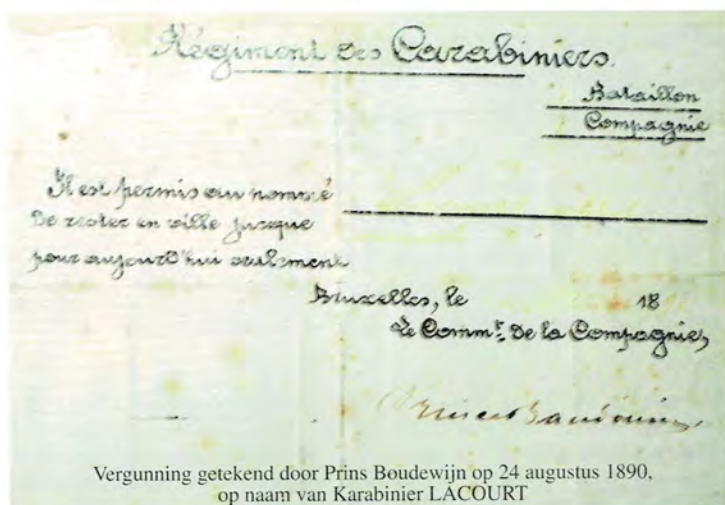 Régiment des Carabiniers.
Bataillon
Compagnie
Il est permis au nommé
de rester en ville jusque
pour aujourd'hui seulement
Bruxelles, le 18
Le Commt. de la Compagnie,
Prince Baudouin,
Vergunning getekend door Prins Boudewijn op 24 augustus 1890,
op naam van Karabinier LACOURT